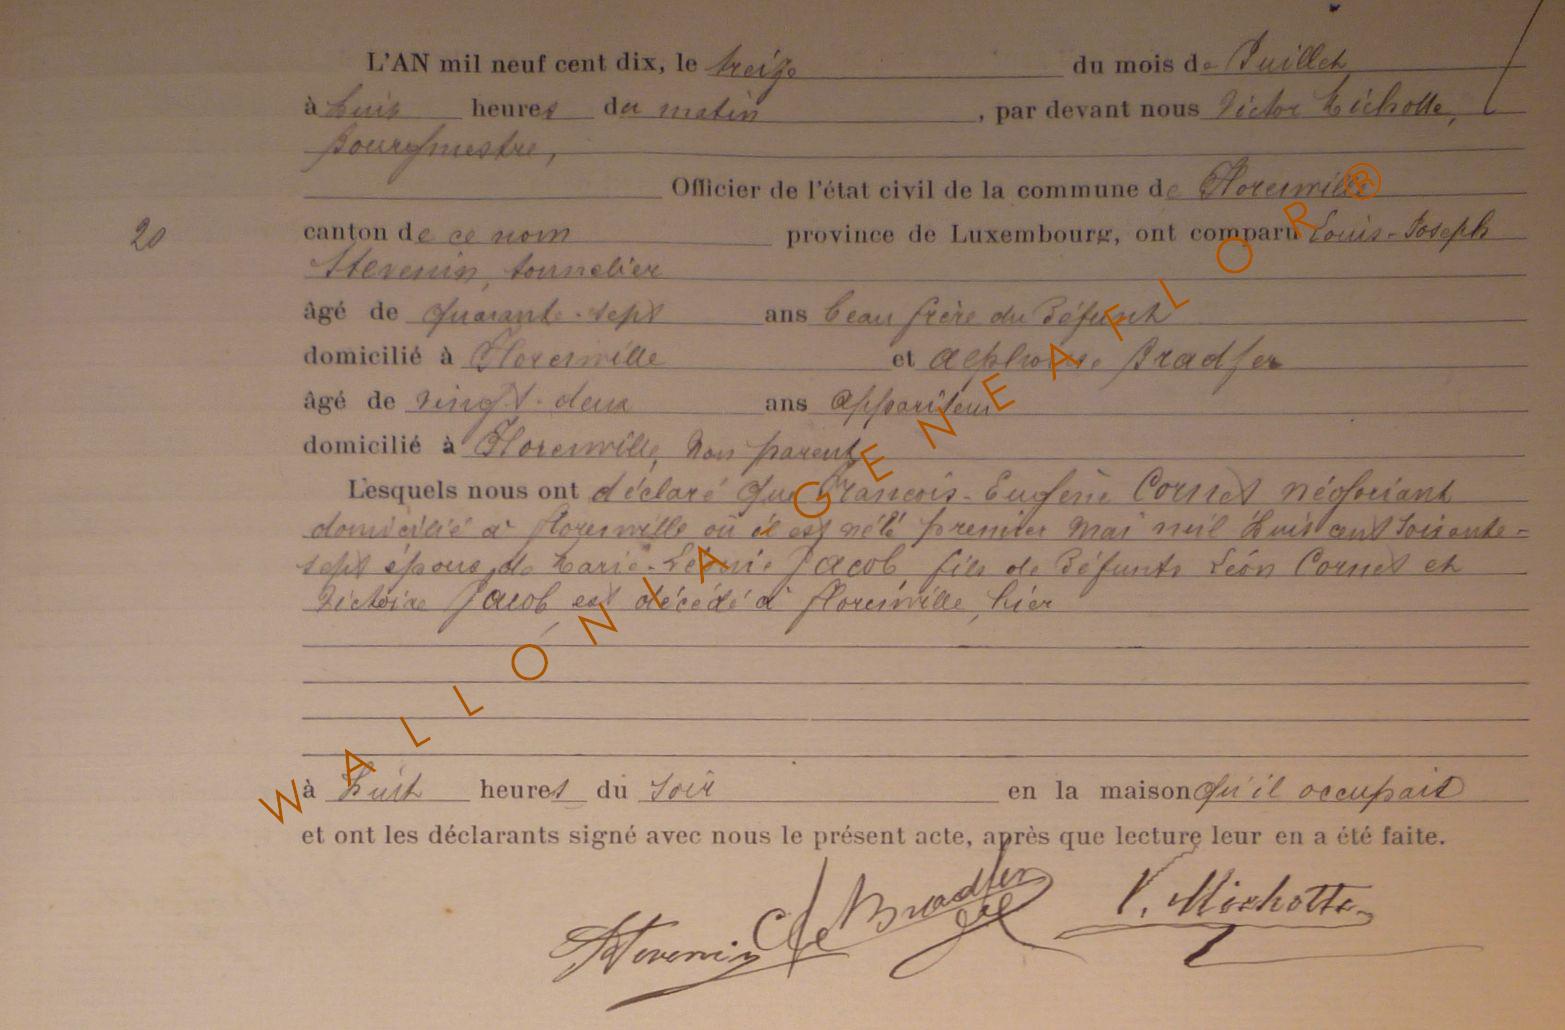 L'AN mil neuf cent dix, le treize du mois de Juillet
à huit heures du matin, par devant nous Victor Michotte,
Bourgmestre,
Officier de l'état civil de la commune de Florenville
20 canton de ce nom province de Luxembourg, ont comparu Louis-Joseph
Stevenin, tonnelier
âgé de quarante-sept ans beau frère du défunt
domicilié à Florenville et Alphonse Bradfer
âgé de vingt-deux ans appariteur
domicilié à Florenville, non parent
Lesquels nous ont déclaré que François-Eugène Cornet négociant
domicilié à Florenville où il est né le premier mai mil huit cent soixante-
sept époux de Marie-Léonie Jacob fils de défunts Léon Cornet et
Victoire Jacob, est décédé à Florenville, hier
à huit heures du soir en la maison qu'il occupait
et ont les déclarants signé avec nous le présent acte, après que lecture leur en a été faite.
Stevenin Bradfer V. Michotte
WALLONIA GENEAFLOR®